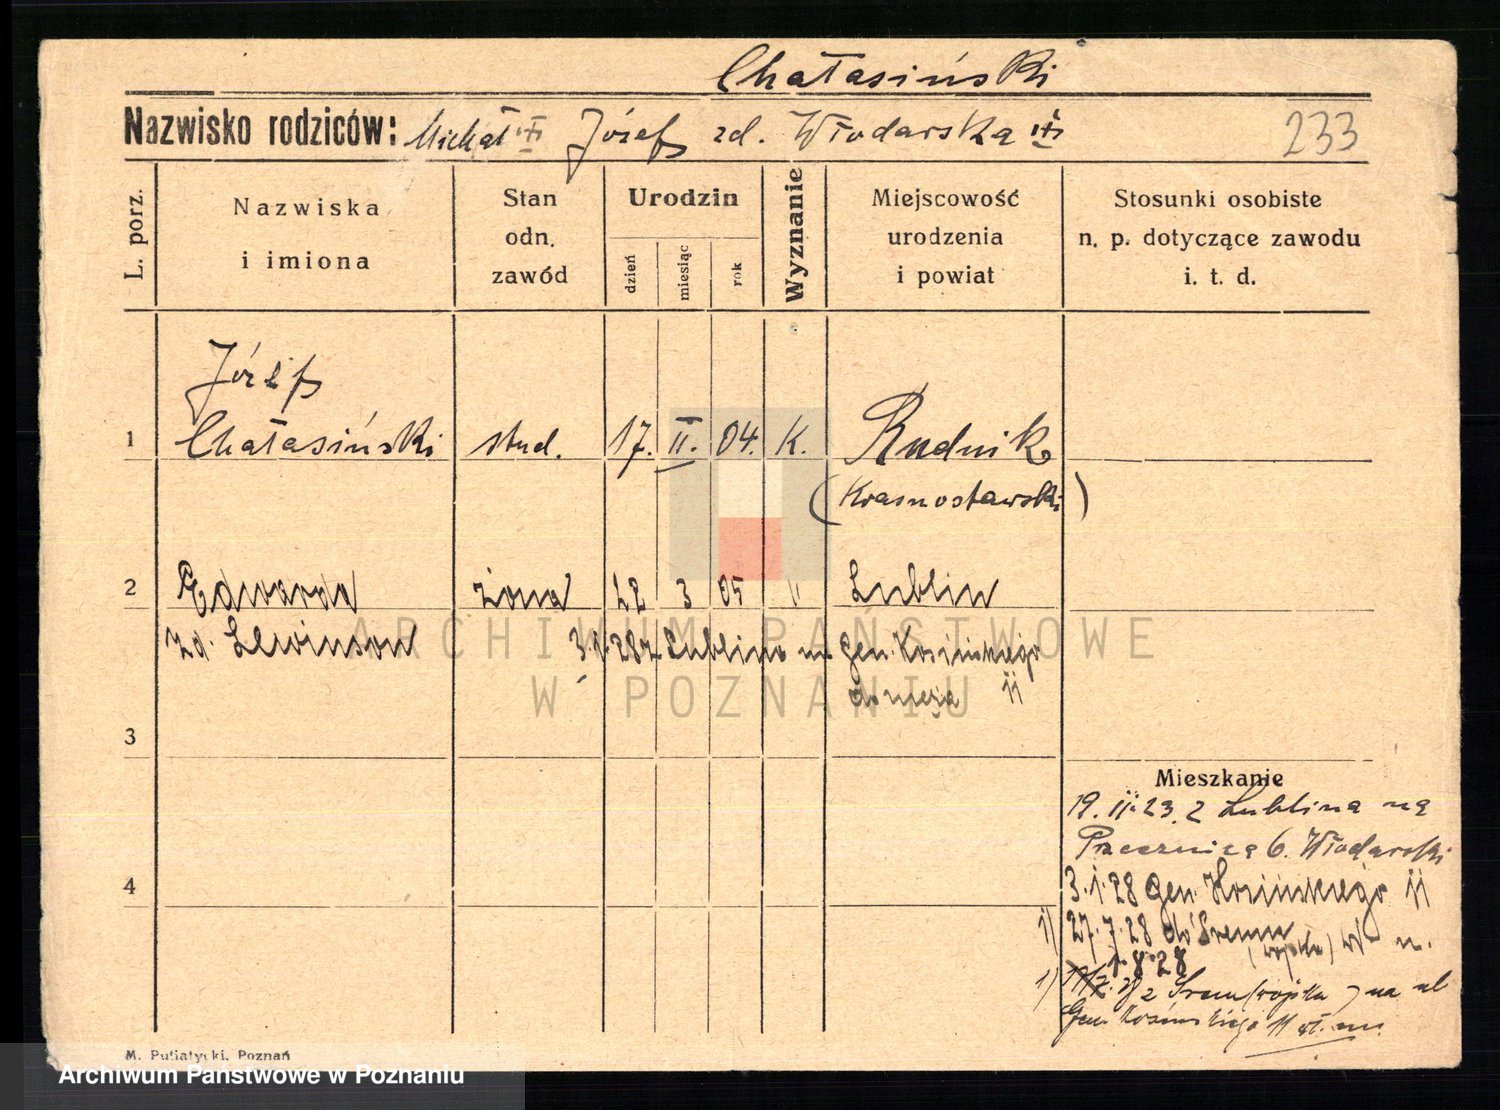 Chałasiński
Nazwisko rodziców: Michał Józef zd. Włodarska
233
L. porz.
Nazwiska i imiona
Stan odn. zawód
Urodzin
dzień miesiąc rok
Wyznanie
Miejscowość urodzenia i powiat
Stosunki osobiste n. p. dotyczące zawodu i. t. d.
Józef
1 Chałasiński stud. 17. II. 04. K. Rudnik
(Krasnostawski)
2 Edwarda żona 22 3 05 " Lublin
zd. Lewinson 3.1.28 z Lublina Gen. Kosińskiego
do męża 11
3
Mieszkanie
19. 11. 23. z Lublina na
Przecznica 6. Włodarski
4
3.1.28 Gen. Kosińskiego 11
1) 27.7.28 do Śremu (wojsko) w. n.
1.8.28
1) z Śrem (wojska) na ul
Gen. Kosińskiego 11 wł. m.
M. Putiatycki, Poznań
ARCHIWUM PAŃSTWOWE
W POZNANIU
Archiwum Państwowe w Poznaniu